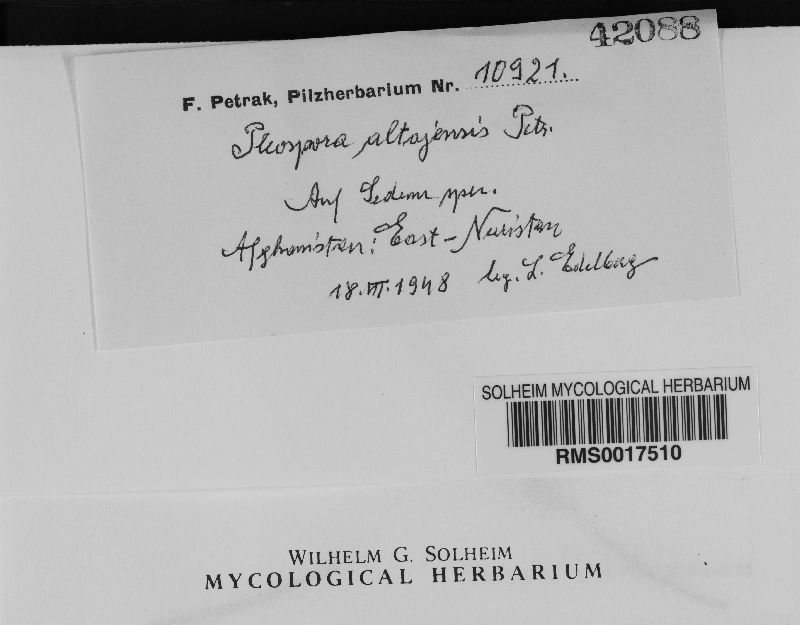 42088
F. Petrak, Pilzherbarium Nr. 10921.
Pleospora altajensis Petr.
Auf Sedum spec.
Afghanistan: East-Nuristan
18.VII.1948 leg. L. Edelberg
SOLHEIM MYCOLOGICAL HERBARIUM
RMS0017510
WILHELM G. SOLHEIM
MYCOLOGICAL HERBARIUM